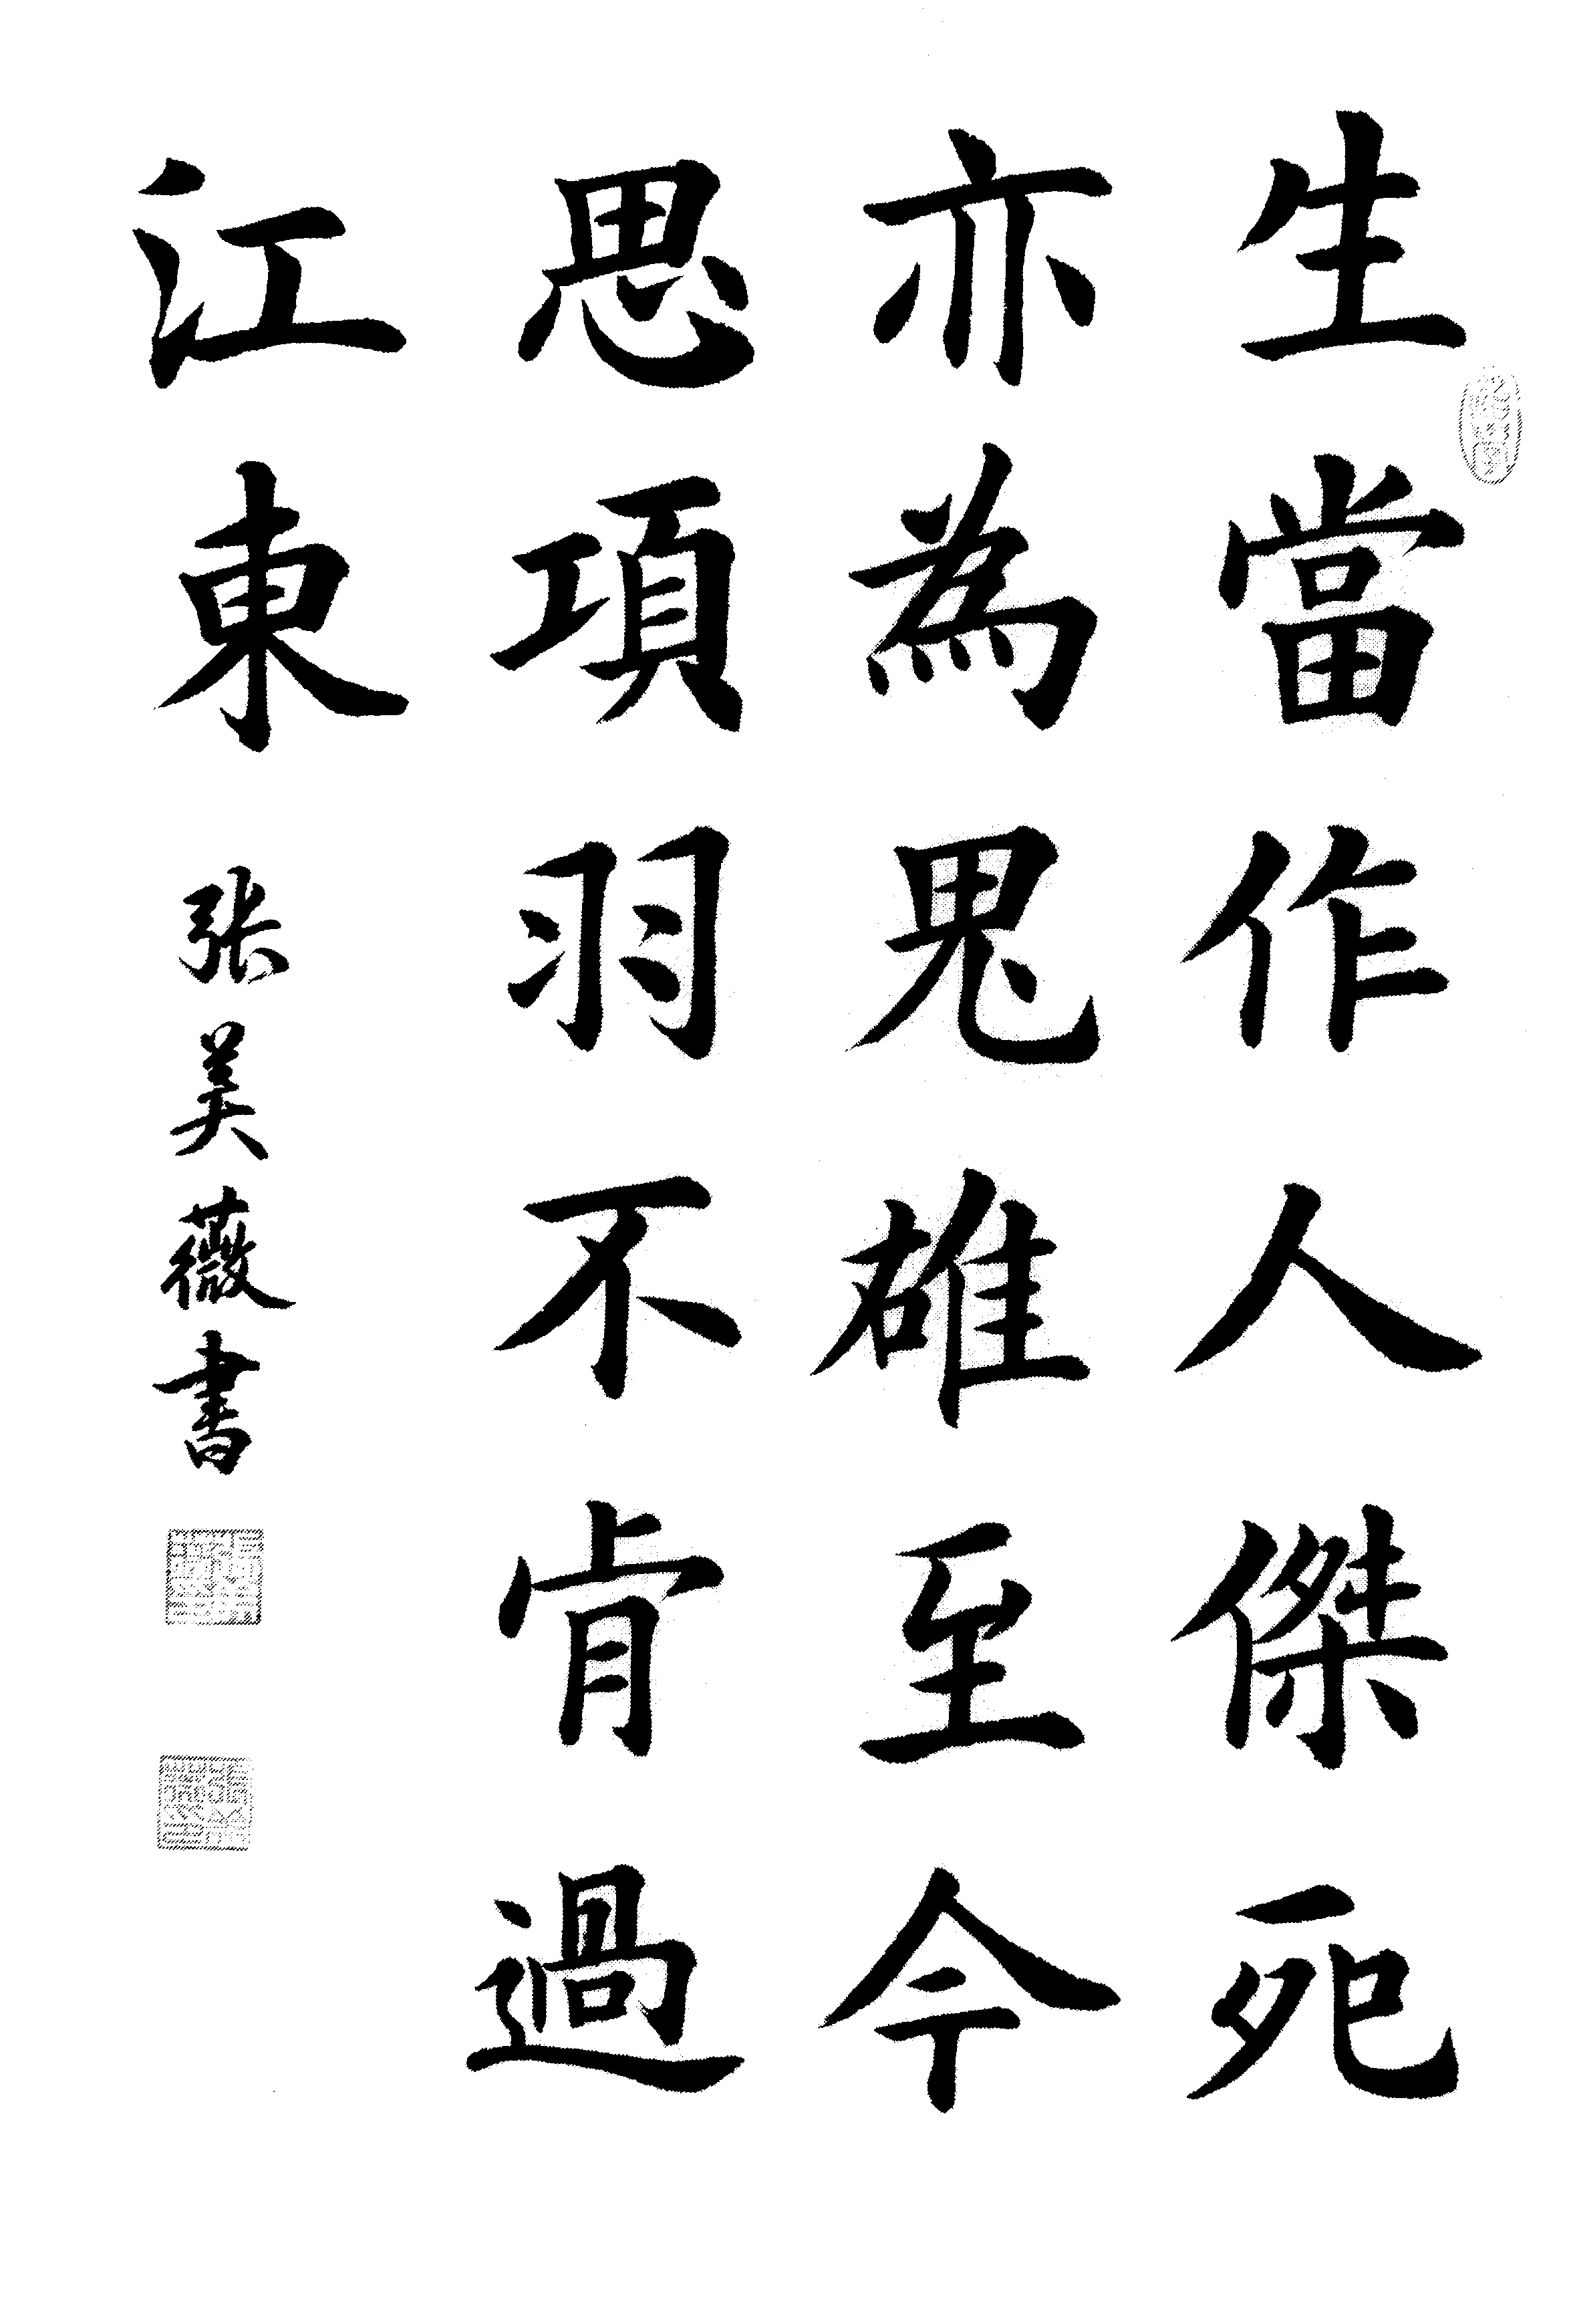 生當作人傑死
亦為鬼雄至今
思項羽不肯過
江東
張美薇書